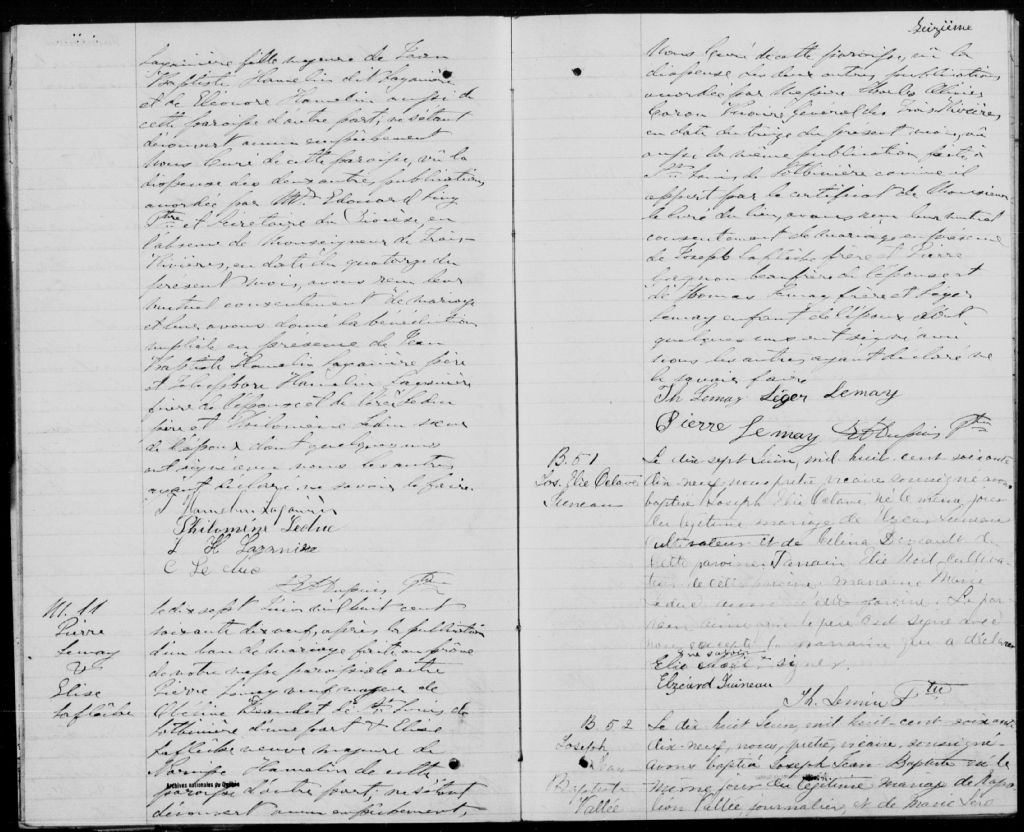 Lazanière fille majeure de Jean
Baptiste Hamelin dit Lazanière
et de Eléonore Hamelin aussi de
cette paroisse d'autre part, ne s'étant
découvert aucun empêchement
Nous Curé de cette paroisse, vû la
dispense des deux autres publications
accordée par Mr. Edouard Ling
Ptre et Secrétaire du Diocèse, en
l'absence de Monseigneur de Trois-
Rivières, en date du quatorze du
présent mois, avons reçu leur
mutuel consentement de mariage
et leur avons donné la bénédiction
nuptiale en présence de Jean
Baptiste Hamelin Lazanière père
et Télesphore Hamelin Lazanière
frère de l'épouse et de Leduc
père et Philomène Leduc sœur
de l'époux dont quelques uns
ont signé avec nous les autres
ayant déclaré ne savoir le faire.
J Hamelin Lazanière
Philomene Leduc
T H Lazanière
C Leduc
Dupuis Ptre
M. 11
Pierre
Lemay
&
Elise
Laflèche
Le dix sept Juin mil huit cent
soixante dix neuf, après la publication
d'un ban de mariage faite au prône
de notre messe paroissiale entre
Pierre Lemay veuf majeur de
de St. Louis de
Lotbinière d'une part & Elise
Laflèche veuve majeure de
Hamelin de cette
paroisse d'autre part, ne s'étant
découvert aucun empêchement,
Archives nationales du Québec
Seizième
Nous Curé de cette paroisse, vû la
dispense des deux autres publications
accordée par Messire Charles Olivier
Caron Vicaire Général des Trois Rivières
en date du treize du présent mois, vû
aussi la même publication faite à
St. Louis de Lotbinière comme il
appert par le certificat de Monsieur
le Curé du lieu, avons reçu leur mutuel
consentement de mariage en présence
de Joseph Laflèche frère et Pierre
Gagnon beaufrère de l'épouse et
de Thomas Lemay frère et Léger
Lemay enfant de l'époux dont
quelques uns ont signé avec
nous les autres ayant déclaré ne
le savoir faire
Th Lemay Léger Lemay
Pierre Lemay Dupuis Ptre
B. 51
Jos. Elie Octave
Juneau
Le dix sept Juin, mil huit cent soixante
dix neuf, nous prêtre vicaire soussigné avons
baptisé Joseph Elie Octave né le même jour
du légitime mariage de
Cultivateur et de Célina
cette paroisse. Parrain Elie Noël, cultiva-
teur de cette paroisse, marraine Marie
Leduc aussi de cette paroisse. Le par-
rain ainsi que le père ont signé avec
nous excepté la marraine qui a déclaré
ne savoir
Elie Noël signer
Elzéard Juineau
Th. Ptre
B. 52
Joseph
Jean
Baptiste
Vallée
Le dix huit Juin, mil huit cent soixante
dix-neuf, nous, prêtre, vicaire, soussigné
avons baptisé Joseph Jean Baptiste né le
même jour du légitime mariage de Napo-
léon Vallée, journalier, et de Marie